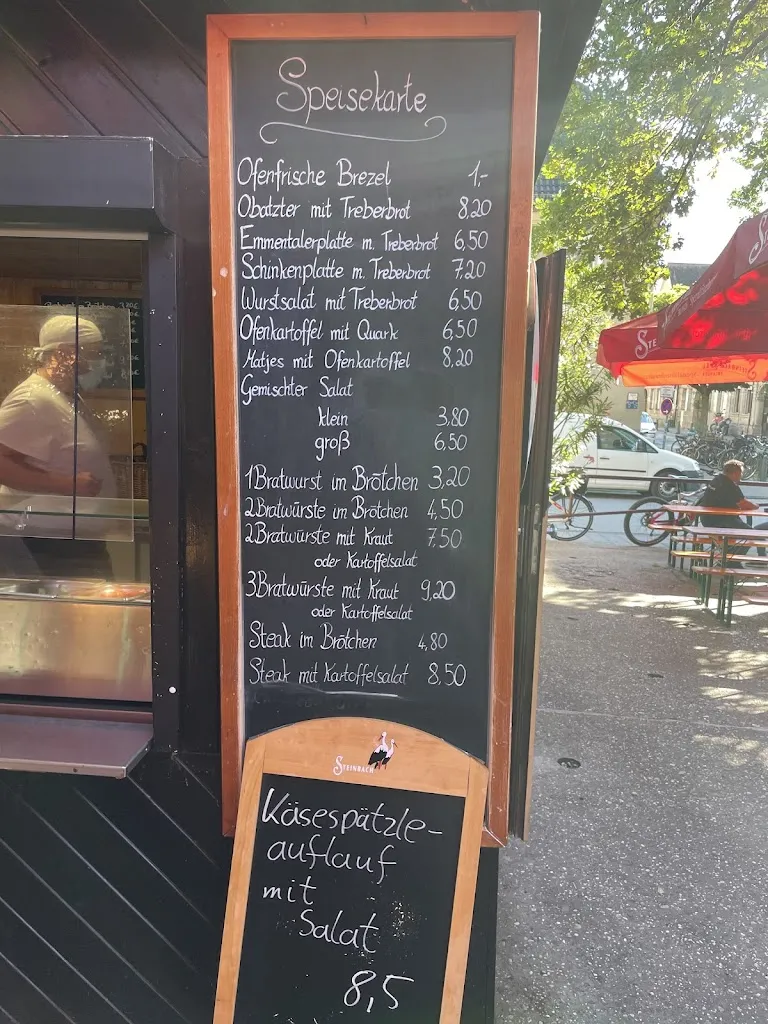 Speisekarte
Ofenfrische Brezel 1,-
Obatzter mit Treberbrot 8,20
Emmentalerplatte m. Treberbrot 6,50
Schinkenplatte m. Treberbrot 7,20
Wurstsalat mit Treberbrot 6,50
Ofenkartoffel mit Quark 6,50
Matjes mit Ofenkartoffel 8,20
Gemischter Salat
klein 3,80
groß 6,50
1 Bratwurst im Brötchen 3,20
2 Bratwürste im Brötchen 4,50
2 Bratwürste mit Kraut 7,50
oder Kartoffelsalat
3 Bratwürste mit Kraut 9,20
oder Kartoffelsalat
Steak im Brötchen 4,80
Steak mit Kartoffelsalat 8,50
STEINBACH
Käsespätzle-
auflauf
mit
Salat
8,5